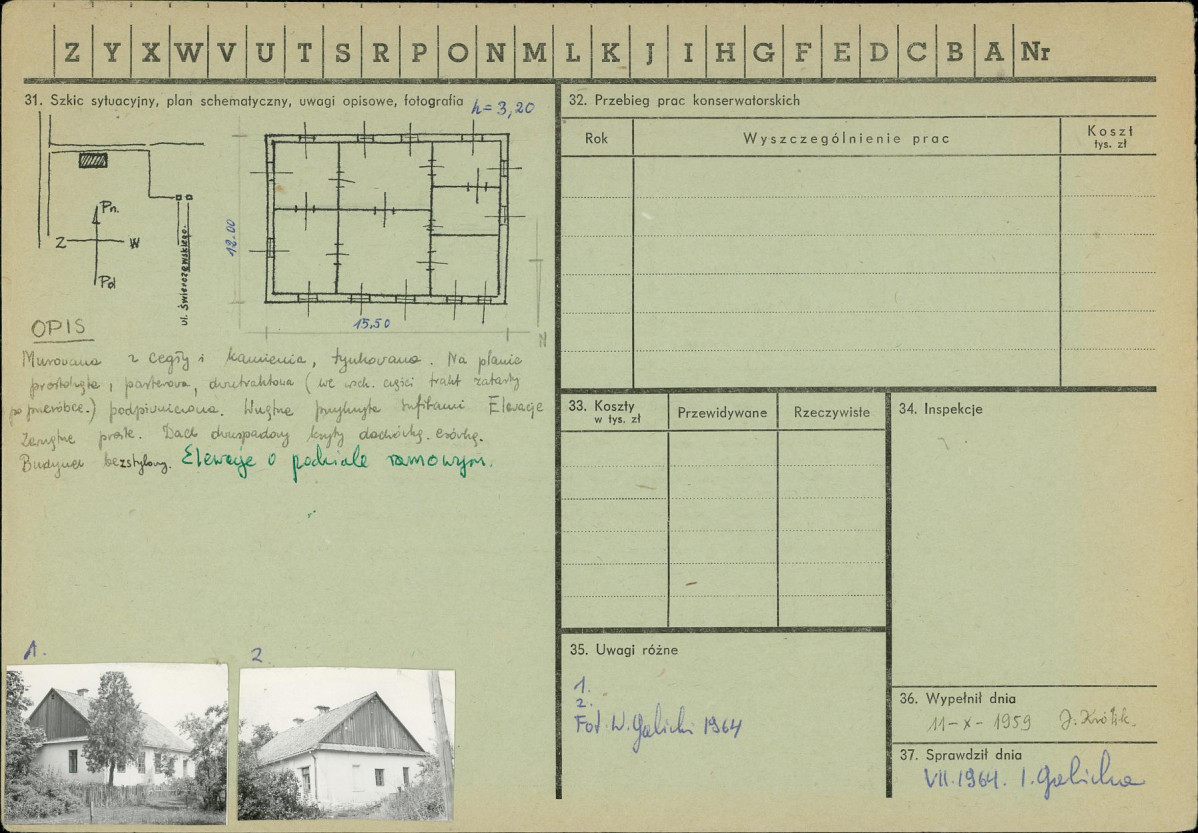 Z Y X W V U T S R P O N M L K J I H G F E D C B A Nr
31. Szkic sytuacyjny, plan schematyczny, uwagi opisowe, fotografia
h = 3,20
Pn.
Z W
Pol
ul. Świerczewskiego.
12.00
15.50
N
OPIS
Murowana z cegły i kamienia, tynkowana. Na planie
prostokąta, parterowa, dwutraktowa (we wsch. części trakt zatarty
po przeróbce.) podpiwniczona. Wnętrze przykryte sufitami Elewacje
Zewnętrzne proste. Dach dwuspadowy kryty dachówką
Budynek bezstylowy. Elewacje o podziale ramowym.
1.
2
32. Przebieg prac konserwatorskich
Rok
Wyszczególnienie prac
Koszt
tys. zł
33. Koszty
w tys. zł
Przewidywane
Rzeczywiste
34. Inspekcje
35. Uwagi różne
1.
2.
Fot. W. Galicki 1964
36. Wypełnił dnia
11-X-1959 J. Królik.
37. Sprawdził dnia
VII.1964. I. Galicka